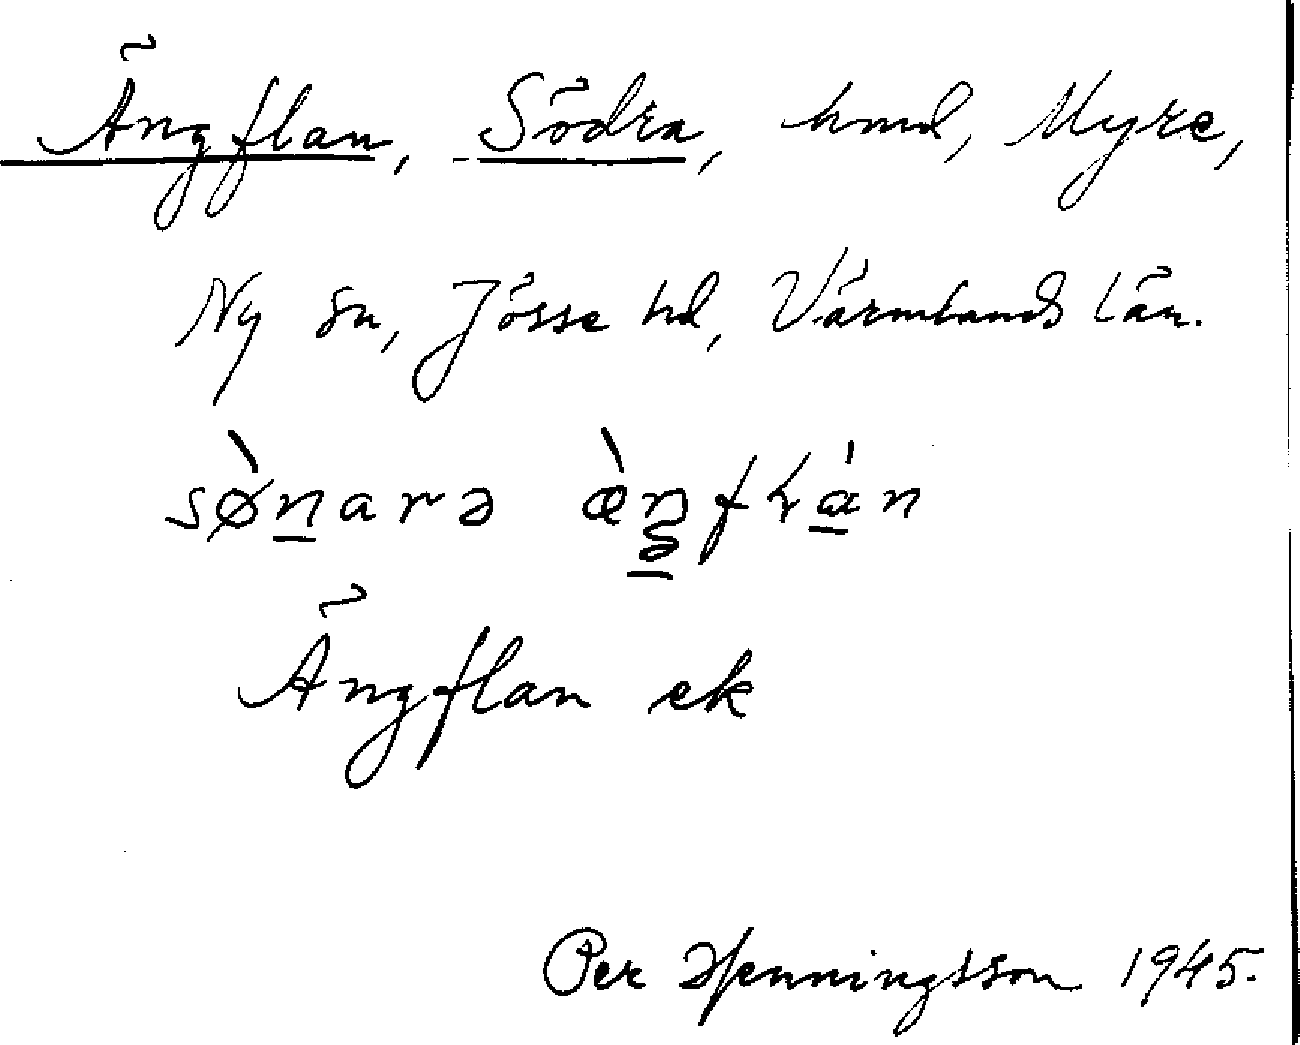 Ängflan, Södra, hmd, Myre,
Ny sn, Jösse hd, Värmlands län.
sø̀n̲arə
Ängflan ek
Per Henningsson 1945.